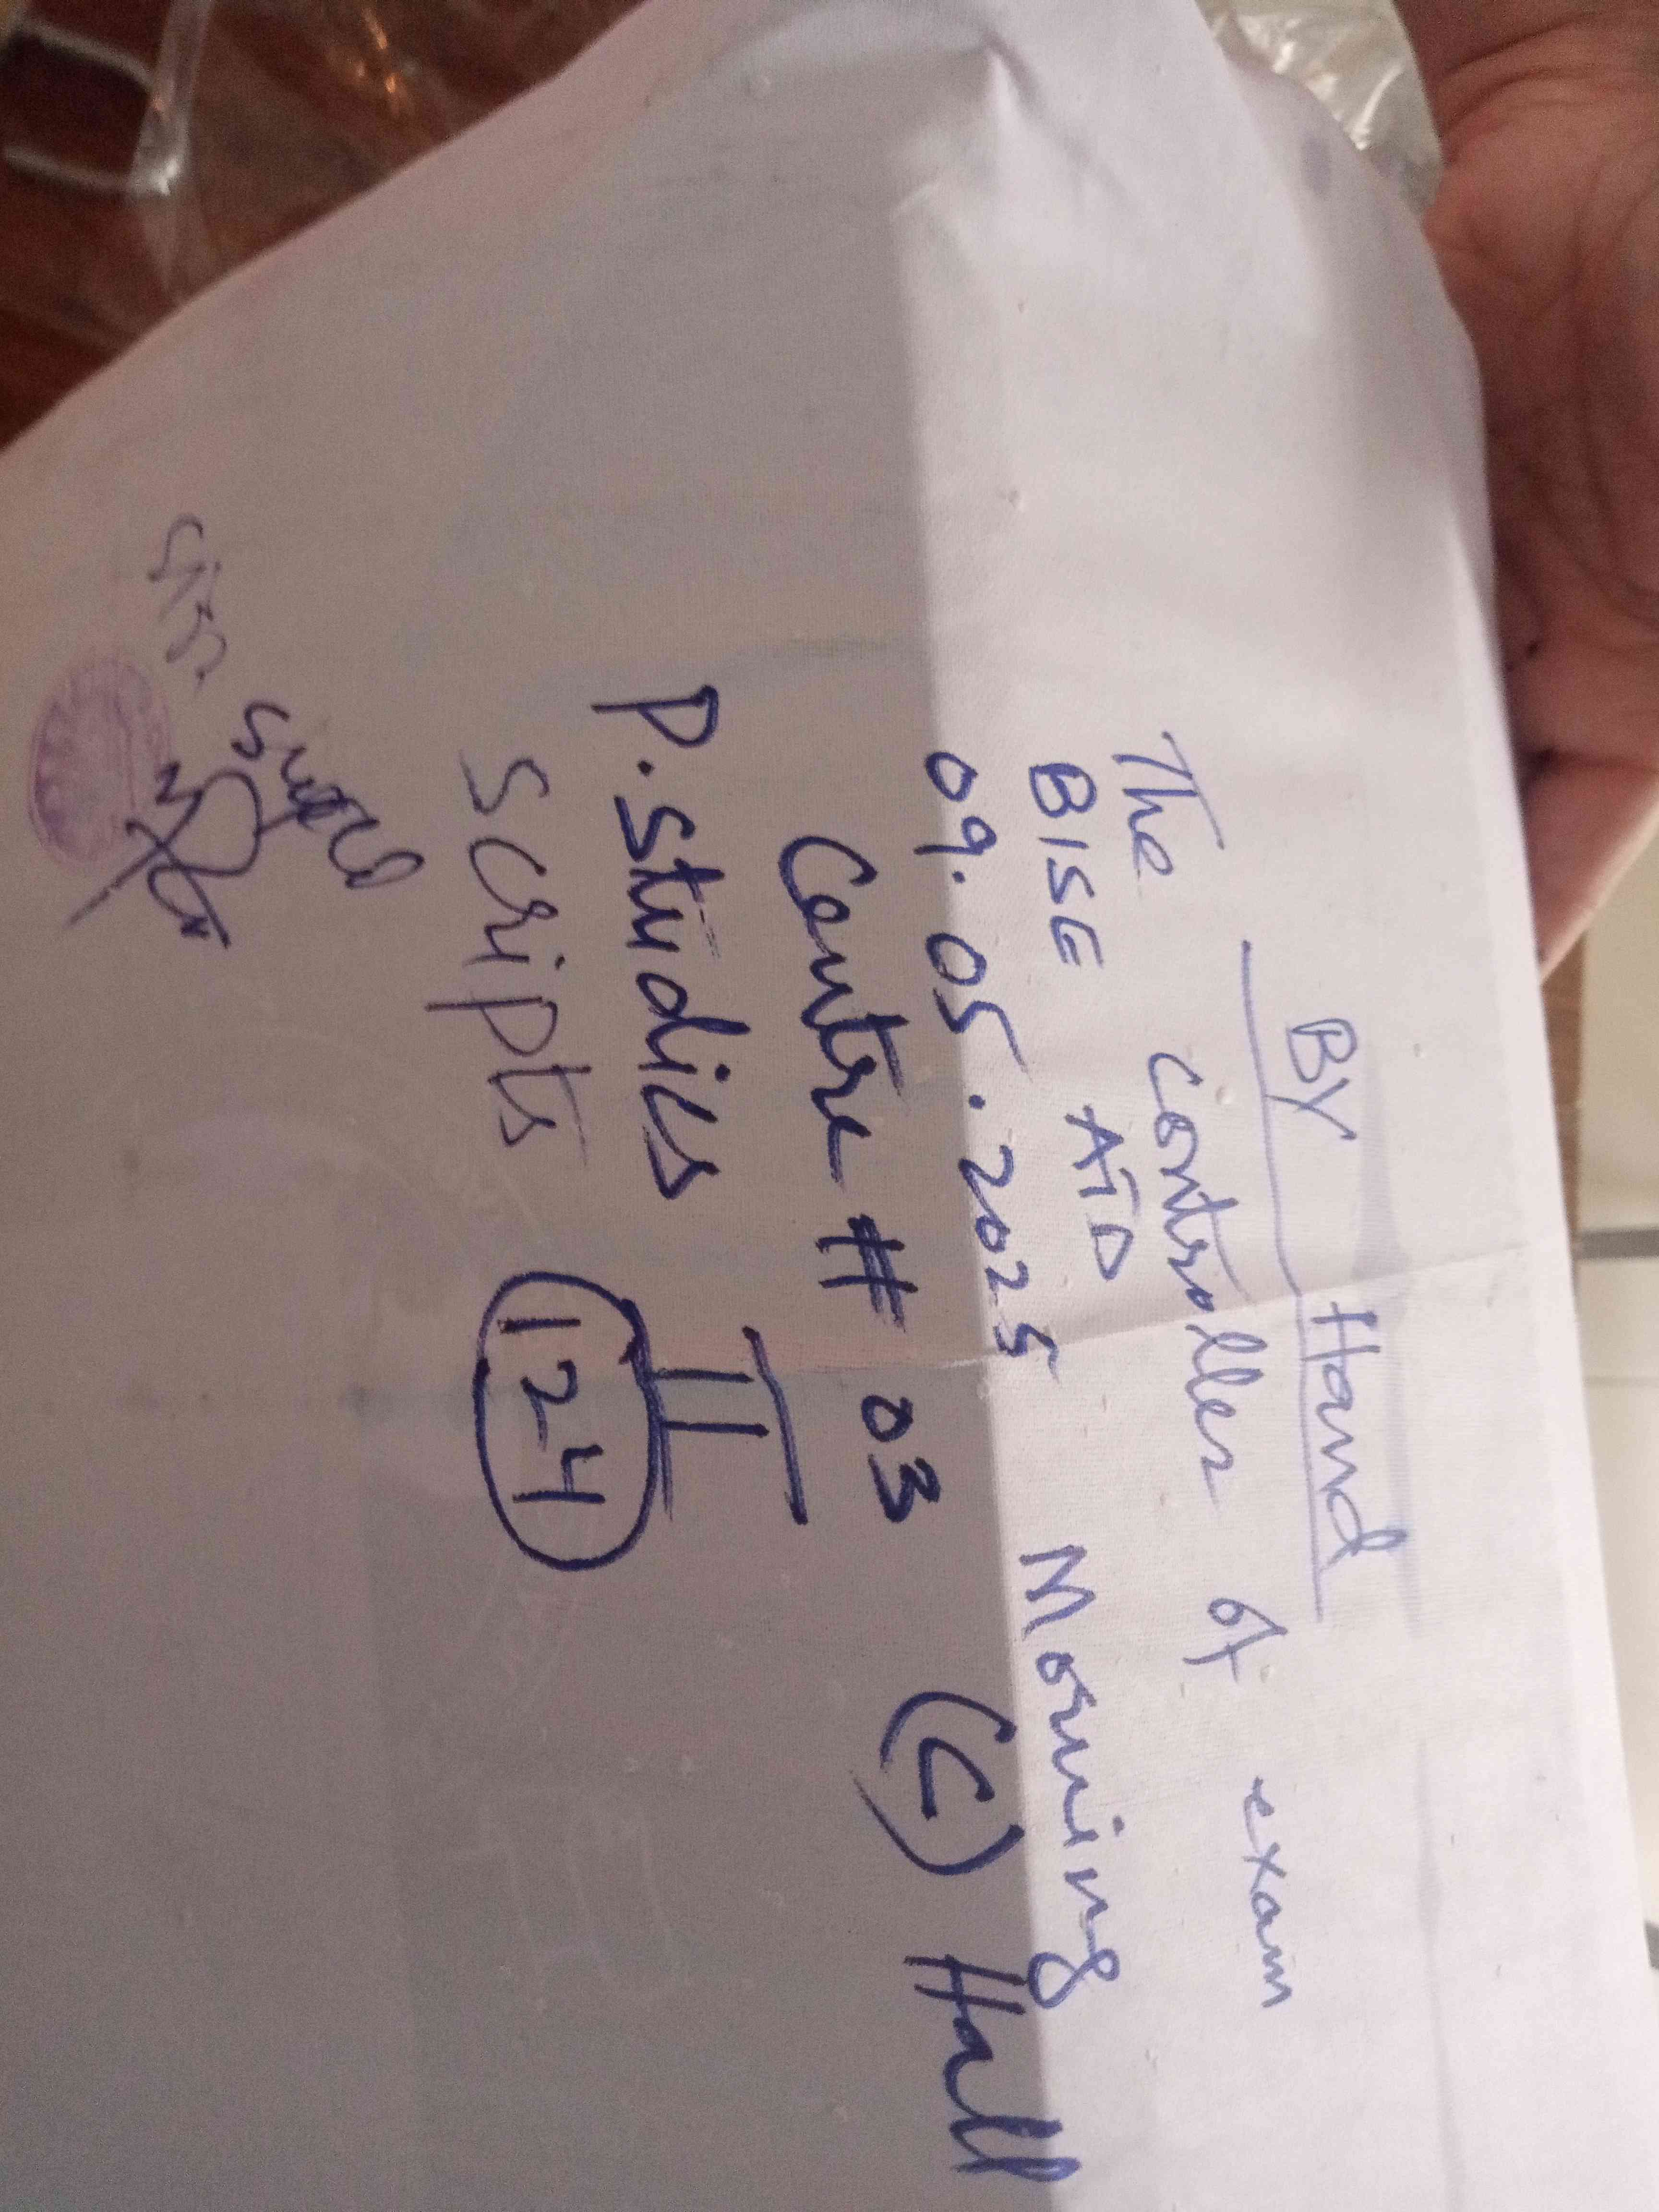 By Hand
The Controller of exam
BISE ATD
09.05.2025 Morning
Centre # 03 (C) Hall
P. Studies II
Scripts 124